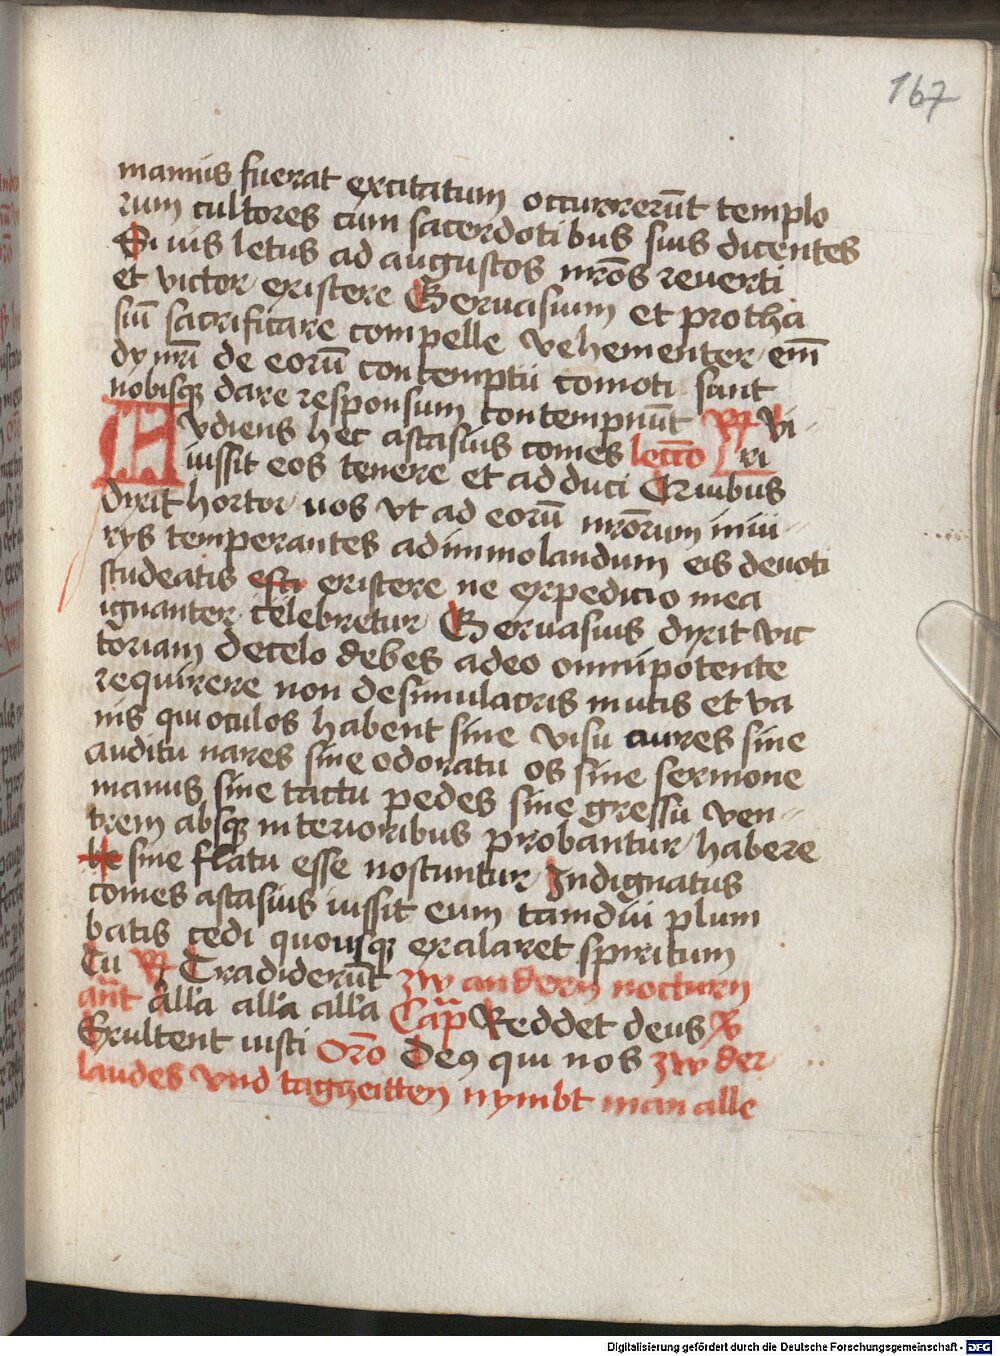 167
mannis fuerat excitatum occurrerūt templo
rum cultores cum sacerdotibus suis dicentes
Si uis letus ad augustos nr̄os reuerti
et victor existere Geruasium et protha
siū sacrificare compelle vehementer em̄
dij nr̄i de eorū contemptu comoti sunt
nobisqꝫ dare responsum contempnūt ℟ Vi-
Audiens hec astasius comes lectio ri
iussit eos tenere et adduci Quibus
dixit hortor uos vt ad eorū nr̄orum iniu-
rijs temperantes ad immolandum eis deuoti
studeatis esti existere ne expedicio mea
ignanter celebretur Geruasius dixit vic
toriam de celo debes a deo omnipotente
requirere non de simulacris mutis et va
nis qui oculos habent sine visu aures sine
auditu nares sine odoratu os sine sermone
manus sine tactu pedes sine gressu ven-
trem absqꝫ interioribus probantur habere
he sine flatu esse noscuntur Indignatus
comes astasius iussit eum tamdiu plum
batis cedi quousqꝫ exalaret spiritum
Tu ℟ Tradiderūt zw andern nocturn
an̄t all'a all'a all'a Cap̄ Reddet deus ℣
Exultent iusti Or̄o Deꝰ qui nos zw der
laudes vnd tagzeitten nymbt man alle
Digitalisierung gefördert durch die Deutsche Forschungsgemeinschaft - DFG